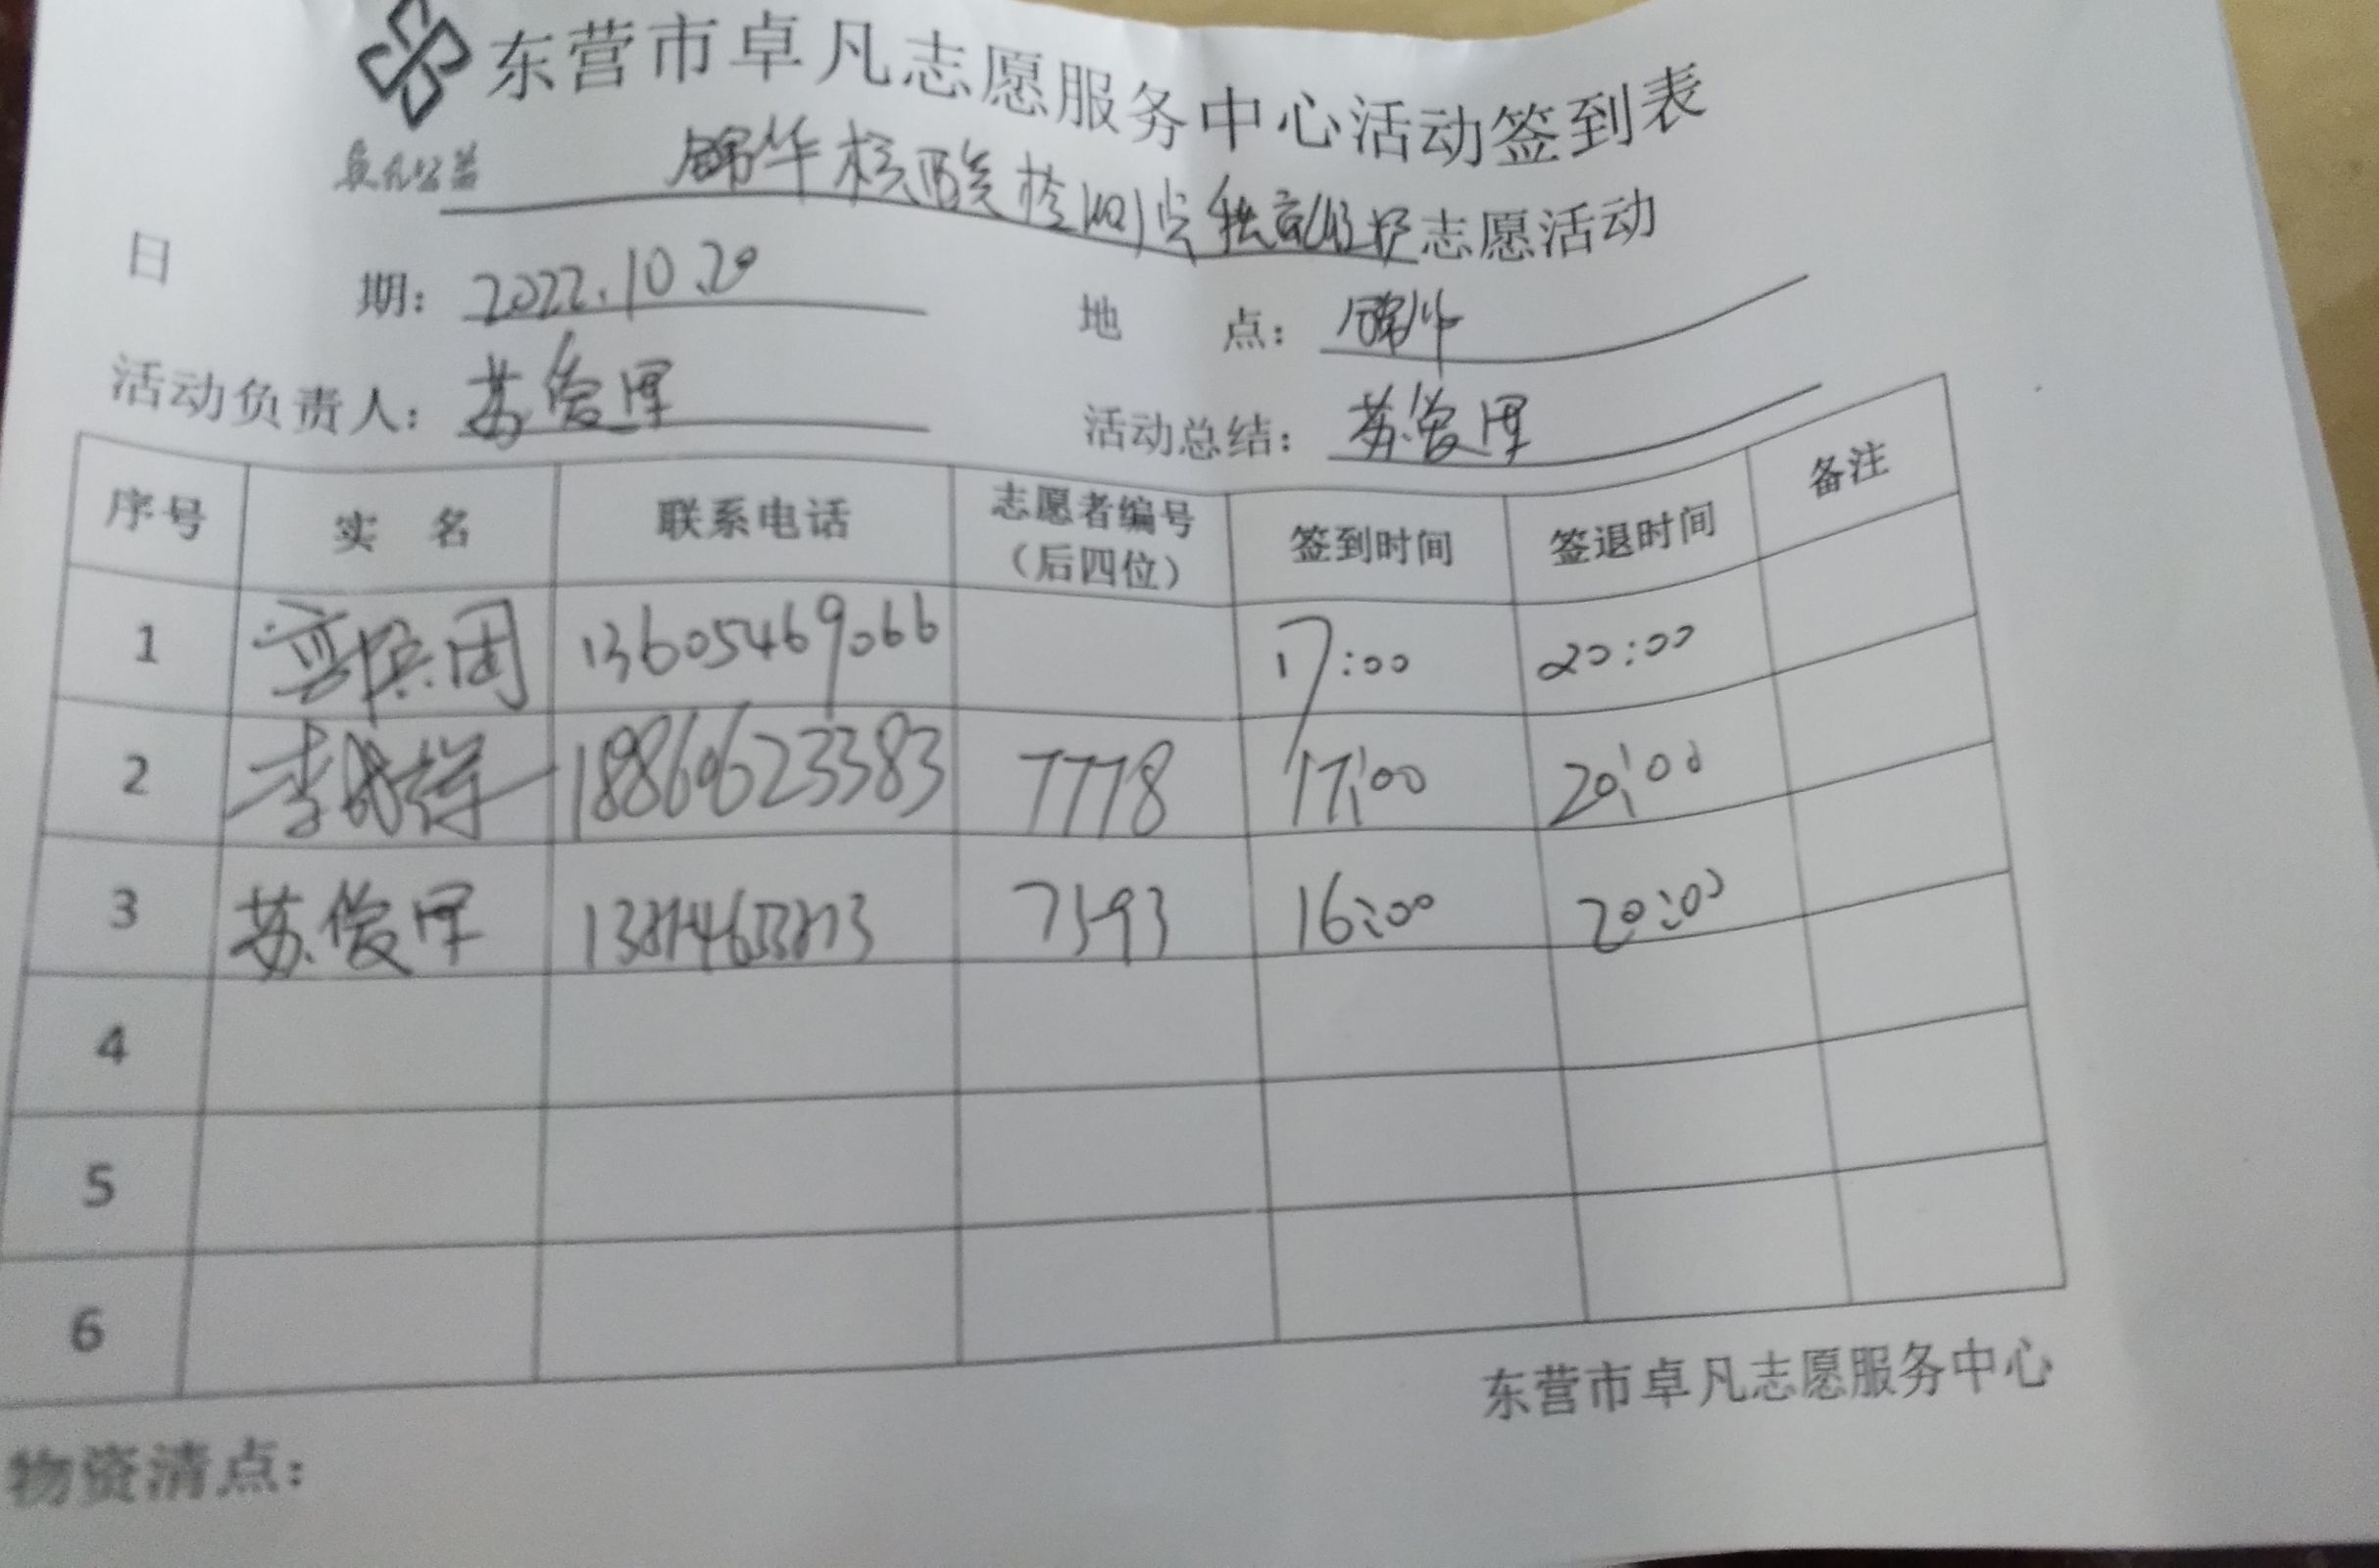 东营市卓凡志愿服务中心活动签到表
卓凡公益
锦华核酸检测点秩序维护志愿活动
日 期: 2022.10.20 地 点: 锦华
活动负责人: 苏俊厚 活动总结: 苏俊厚
序号 实 名 联系电话 志愿者编号(后四位) 签到时间 签退时间 备注
1 13605469066 17:00 20:00
2 李成祥 18860623383 7778 17:00 20:00
3 苏俊厚 7593 16:00 20:00
4
5
6
东营市卓凡志愿服务中心
物资清点: